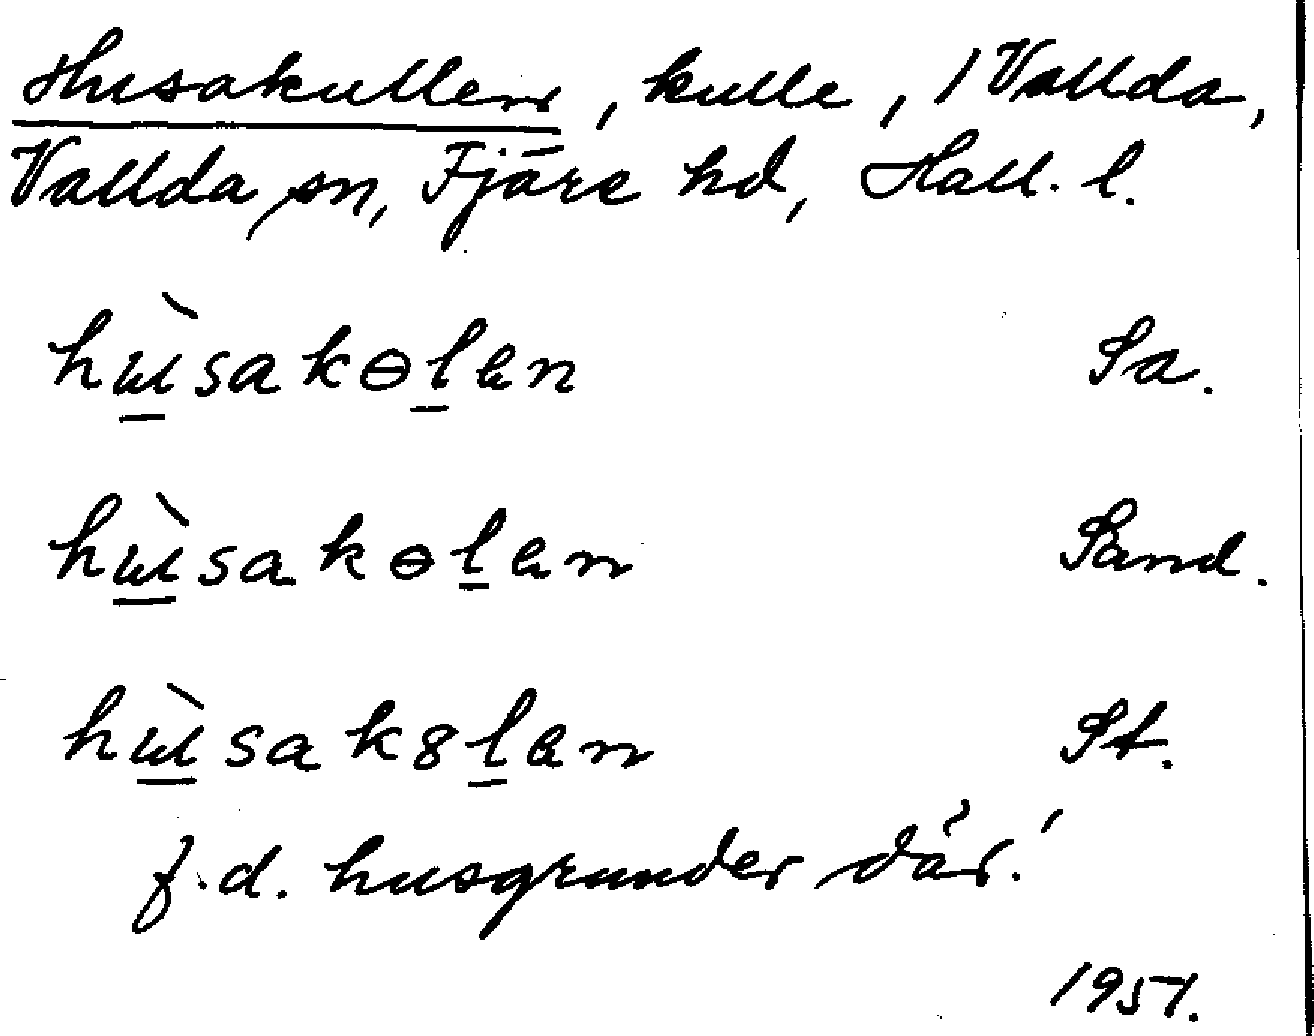 Husakullen, kulle, 1 Vallda,
Vallda sn, Fjäre hd, Hall. l.
hɯ̀sakɵlən Sa.
hɯ̀sakɵlən Sand.
hɯ̀sak8lən St.
f.d. husgrunder där.'
1951.